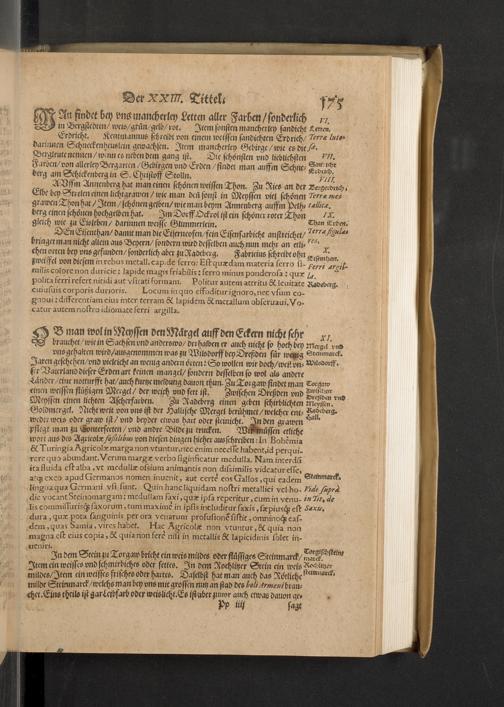 Der XXIII. Tittel. 575
MAn findet bey vns mancherley Letten aller Farben/sonderlich
in Bergstedten/weis/grün/gelb/rot. Item sonsten mancherley sandicht
Erdricht. Kentmannus schreibt von einem weissen sandichten Erdrich/
darinnen Schneckenheuslein gewachsen. Item mancherley Gebirge/wie es die
Bergleute nennen/wann es neben dem gang ist. Die schönsten vnd lieblichsten
Farben/von allerley Bergarten/Gebirgen vnd Erden/findet man auffm Schne-
berg am Schickenberg in S. Christoff Stolln.
AVffm Annenberg hat man einen schönen weissen Thon. Zu Ries an der
Elbe bey Strelen einen lichtgrawen/wie man deñ sonst in Meyssen viel schönen
grawen Thon hat/Item/schönen gelben/wie man beym Annenberg auffm Pöhl-
berg einen schönen hochgelben hat. Im Dorff Ockrol ist ein schöner roter Thon
gleich wie zu Eisleben/darinnen weisse Glimmerlein.
DEn Eisenthan/damit man die Eisernöfen/fein Eisenfarbicht anstreichet/
bringet man nicht allein aus Beyern/sondern wird desselben auch nun mehr an etli-
chen orten bey vns gefunden/sonderlich aber zu Radeberg. Fabricius schreibt ohn
zweiffel von diesem in rebus metall. cap. de ferro: Est quædam materia ferro si-
milis colore non duricie: lapide magis friabilis: ferro minus ponderosa: quæ
polita ferri refert nitidi aut vstirati formam. Politur autem attritu & leuitate
cuiusuis corporis durioris. Locum in quo effoditur ignoro, nec vsum co-
gnoui: differentiam eius inter terram & lapidem & metallum obseruaui. Vo-
catur autem nostro idiomate ferri argilla.
OB man wol in Meyssen den Märgel auff den Eckern nicht sehr
brauchet/wie in Sachsen vnd anderswo/derhalben er auch nicht so hoch bey
vns gehalten wird/ausgenommen was zu Wilsdorff bey Dresden für wenig
Jaren geschehen/vnd vieleicht an wenig andern örten: So wollen wir doch/weil vn-
ser Vaterland dieser Erden art keinen mangel/sondern desselben so wol als andere
Länder/eine notturfft hat/auch kurtze meldung dauon thun. Zu Torgaw findet man
einen weissen flüssigen Mergel/der weich vnd fett ist. Zwischen Dresden vnd
Meyssen einen lichten Ascherfarben. Zu Radeberg einen gelben schirblichten
Goldmergel. Nicht weit von vns ist der Hallische Mergel berühmet/welcher ent-
weder weis oder graw ist/vnd beyder etwas hart oder steinicht. In den grawen
pflegt man zu Conterfeeten/vnd ander Bilde zu trucken. Wir müssen etliche
wort aus des Agricolæ fossilibus von diesen dingen hieher ausschreiben: In Bohêmia
& Turingia Agricolæ marga non vtuntur, nec enim necesse habent, id perqui-
rere quo abundant. Verum margæ verbo significatur medulla. Nam interdū
ita fluida est alba, vt medullæ ossium animantis non dissimilis videatur esse,
atq; exeo apud Germanos nomen inuenit, aut certè eos Gallos, qui eadem
lingua qua Germani vsi sunt. Quin hanc liquidam nostri metallici vel ho-
die vocant Steinomargam; medullam saxi, quæ ipsa reperitur, cum in venu-
lis commissurisq; saxorum, tum maximè in ipsis includitur saxis, sæpiusq; est
dura, quæ pota sanguinis per ora venarum profusionē sistit, omninoq; eas-
dem, quas Samia, vires habet. Hac Agricolæ non vtuntur, & quia non
magna est eius copia, & quia non ferè nisi in metallis & lapicidinis solet in-
ueniri.
In dem Stein zu Torgaw bricht ein weis mildes oder flüssiges Steinmarck/
Item ein weisses vnd schmerbiches oder fettes. In dem Rochlitzer Stein ein weis
mildes/Item ein weisses frisches oder hartes. Daselbst hat man auch das Rötliche
milde Steinmarck/welchs man bey vns mit grossem nutz an stad des boli Armeni brau-
chet. Eins theils ist gar Leibfarb oder weislicht. Es ist aber zuuor auch etwas dauon ge-
Pp iiij sagt
VI.
Letten.
Terræ luto-
sæ.
VII.
Gebirgs
Erdrich.
VIII.
Bergerdrich.
Terræ me-
tallicæ.
IX.
Thon Erden.
Terræ figula-
res.
X.
Eisenthan.
Ferri argil-
la.
Radeberg.
XI.
Mergel vnd
Steinmarck.
Wilsdorff.
Torgaw
zwischen
Dresden vnd
Meyssen.
Radeberg.
Hall.
Steinmarck.
Vide suprà
in Tit. de
Saxis.
Torgischsteins
marck.
Rochlitzer
steinmarck.